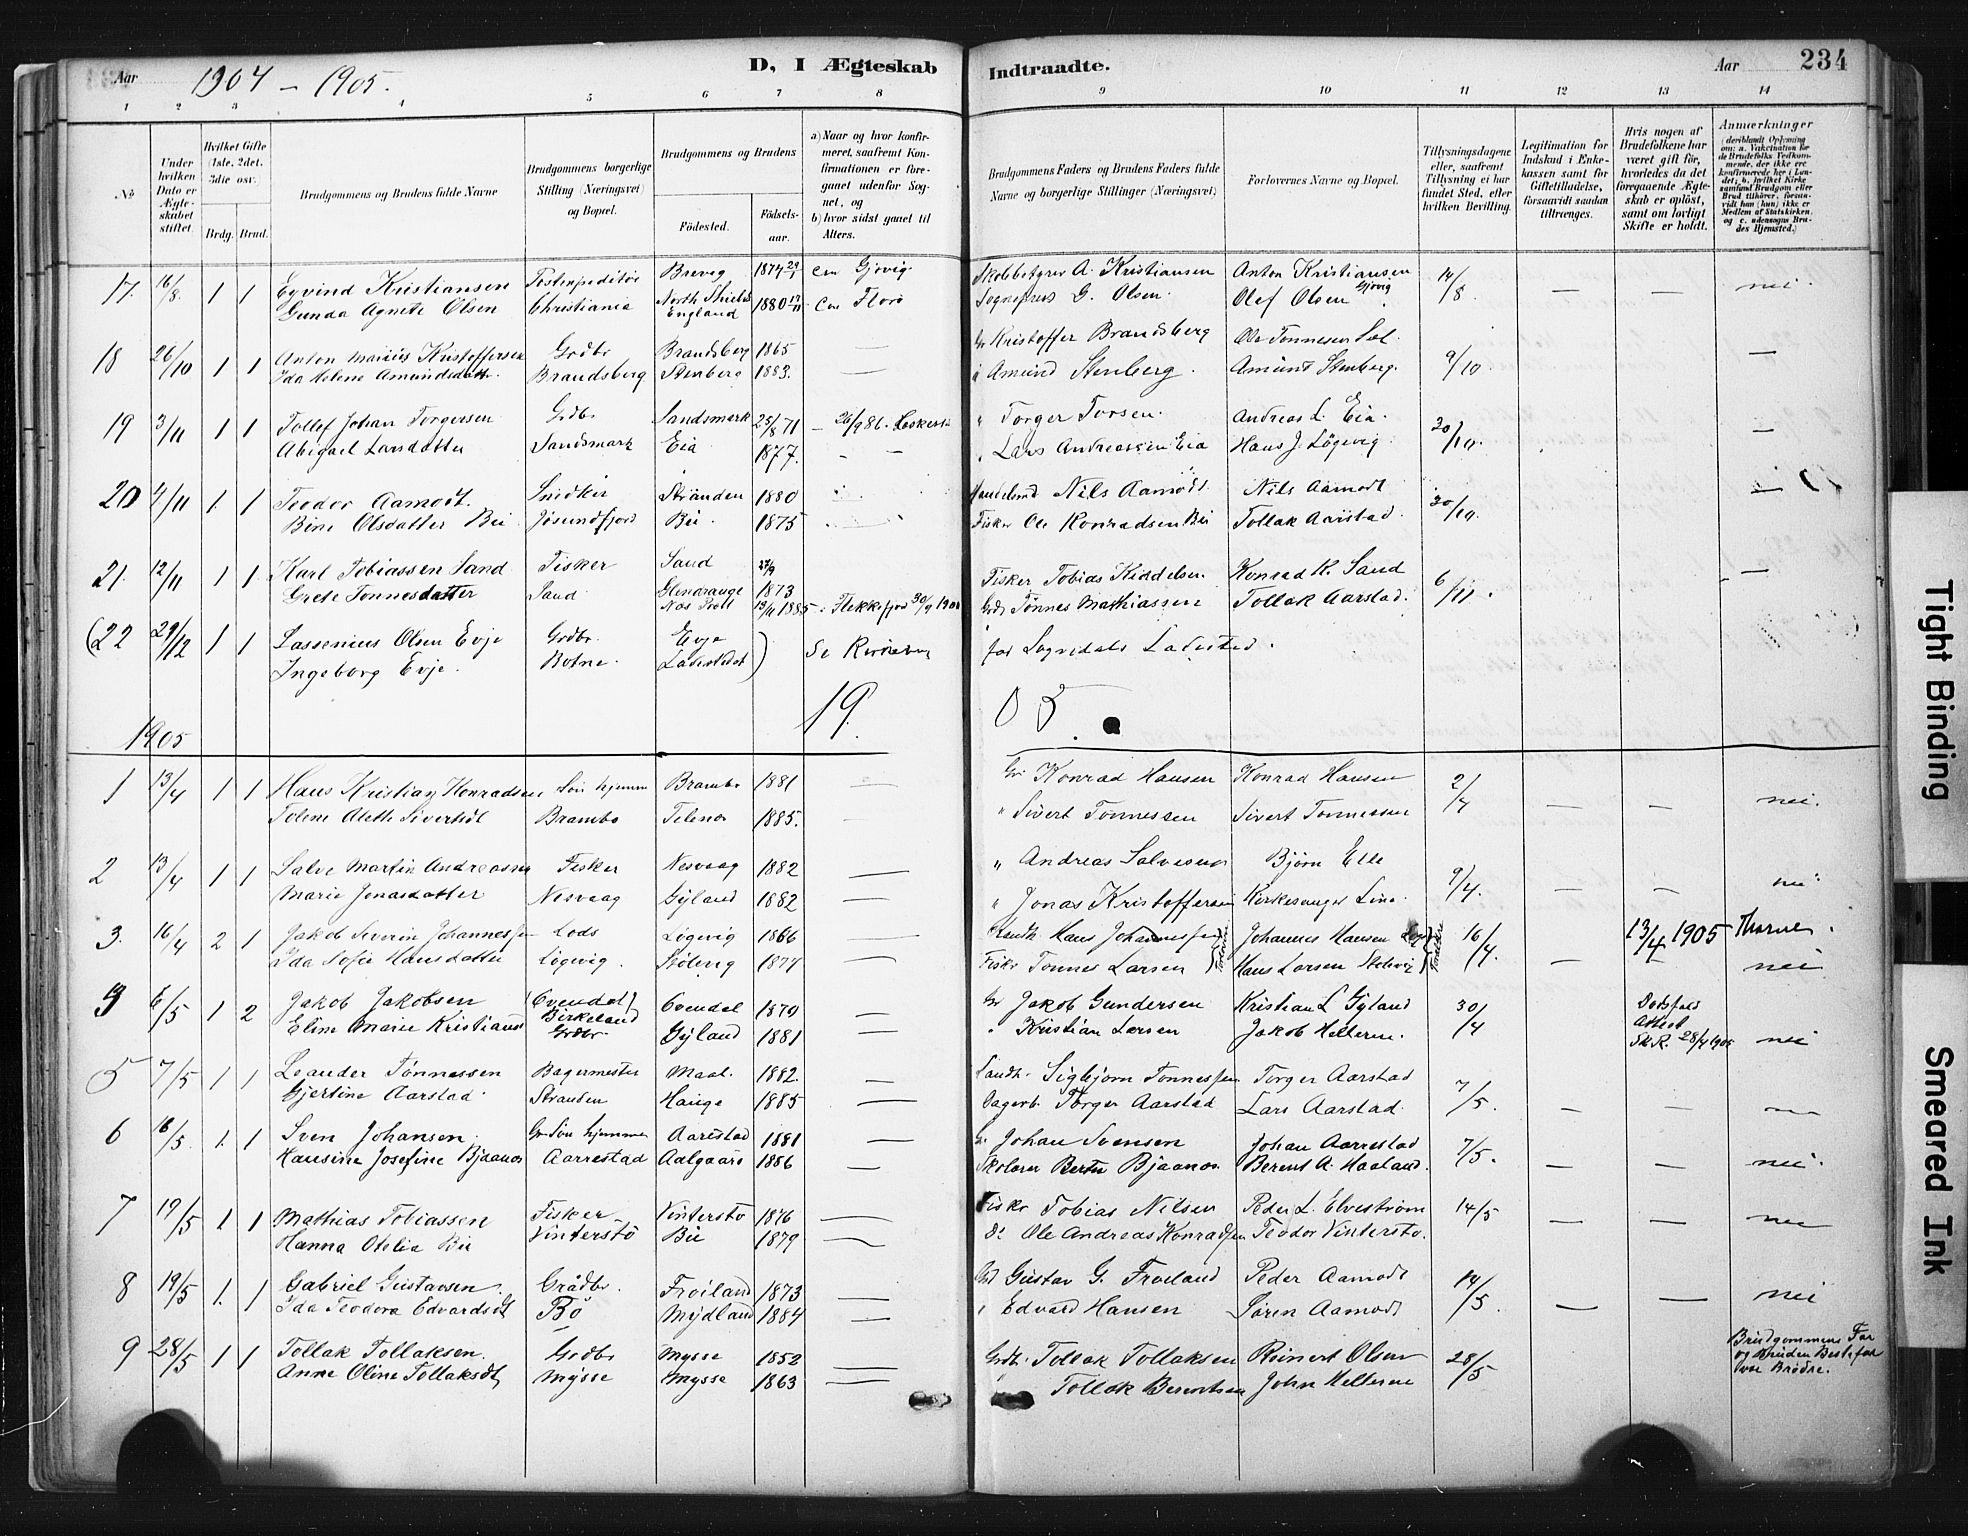 Aar 1904 - 1905. D, I Ægteskab Indtraadte. Aar 234
1 2 3 4 5 6 7 8 9 10 11 12 13 14
№
Under hvilken Dato er Ægteskabet stiftet.
Hvilket Gifte (1ste, 2det, 3die osv.
Brdg. Brud.
Brudgommens og Brudens fulde Navne
Brudgommens borgerlige Stilling (Næringsvei) og Bopæl.
Brudgommens og Brudens
Fødested. Fødselsaar.
a) Naar og hvor konfirmeret, saafremt Konfirmationen er foregaaet udenfor Sognet, og
b) hvor sidst gaaet til Alters.
Brudgommens Faders og Brudens Faders fulde Navne og borgerlige Stillinger (Næringsvei)
Forlovernes Navne og Bopæl.
Tillysningsdagene eller, saafremt Tillysning ei har fundet Sted, efter hvilken Bevilling.
Legitimation for Indskud i Enkekassen samt for Giftetilladelse, forsaavidt saadan tiltrænges.
Hvis nogen af Brudefolkene har været gift før, hvorledes da det foregaaende Ægteskab er opløst, samt om lovligt Skifte er holdt.
Anmærkninger
17. 16/8. 1 1 Eyvind Kristiansen Postexpeditör Brevig 1874 29/1 Gjövig A. Kristiansen Anton Kristiansen Gjövig 14/8 — — nei.
Gunda Agnete Olsen Christiania North Shields England 1880 Florö Sogneprest G. Olsen. Olef Olsen
18 26/10 1 1 Anton Marius Kristoffersen Grdbr Brandsberg 1865 — Kristoffer Brandsberg Ole Tonnesen 9/10. —
Ida Helene Amundsdatter Brandsberg Stenberg 1883. — Amund Stenberg. Amunt Stenberg.
19 3/11 1 1 Tollef Johan Torgersen Grdbr Sandsmark 25/8 71 26/9 86. " Torger Torsen. Andreas L. Eia. 30/10. —
Abigael Larsdatter Sandsmark Eia 1877. — — " Lars Andreassen Eia Hans J. Lögevig.
20 4/11 1. 1 Teodor Aamodt. Snedker Stranden 1880 Nils Aamodt. Nils Aamodt 30/10. —
Bine Olsdatter Bu Jösundfjord Bu. 1875 Fisker Ole Konradsen Bu Tollak Aarstad.
21. 12/11 1 1. Karl Tobiassen Sand Fisker Sand 27/9 1873 Fisker Tobias Kiddelsen. Konrad K. Sand 6/11. —
Grete Tonnesdatter Sand 1885 Flekkefjord 30/9 1900 Tönnes Mathiassen Tollak Aarstad.
(22 29/12 1 1 Lassenius Olsen Evje Grdbr. Evje
Ingeborg Evje. Botne. Ladestedet ) Se Kirkebog for Sogndals Ladested.
19. 05.
1905
1 13/4 1 1 Hans Kristian Konradsen Sön hjemme Brambo 1881 — Konrad Hansen Konrad Hansen 2/4 — — nei.
Toline Alette Sivertsdt Brambo 1885. — " Sivert Tonnessen Sivert Tonnessen
2 13/4 1 1 Salve Martin Andreassen Fisker Nesvaag 1882 — " Andreas Salvesen Björn Elle 9/4. — — nei
Marie Jonasdatter Nesvaag Gyland 1882 — " Jonas Kristoffersen Kirkesanger Line.
3. 16/4 2 1 Jakob Severin Johannessen Lods Lögevig 1866 — Hans Johannessen Johannes Hansen 16/4 — 13/4 1905
Ida Sofie Hansdatter Lögevig. 1874 — Fiskr Tonnes Larsen Hans Larsen — nei
6/5 1 2 Jakob Jakobsen (Ovendal) Ovendal 1879 — Gr Jakob Gundersen Kristian L Gyland 30/4 Dödsfald Attest Sk.R. 28/4 1905 nei
Eline Marie Kristiansd Birkeland Grdbr. Gyland 1881 — " Kristian Larsen Jakob Helleren.
5 7/5 1 1 Leander Tönnessen Bagermester Maal. 1882. — Sigbjörn Tonnessen Torger Aarstad 7/5. — —
Gjertine Aarstad. Stranden Hauge 1885 — Torger Aarstad Lars Aarstad.
6 16/5. 1. 1 Sven Johansen. Gr Sön hjemme Aarestad 1881 — Johan Svensen Johan Aarrestad 7/5. — — nei.
Hansine Josefine Bjaanes Aarrestad Aalgaard 1886 — Skolærer Berte Bjaanes. Berent A. Haaland.
7 19/5 1. 1 Mathias Tobiassen Fisker Vinterstö 1876 — Fiskr Tobias Nilsen Peder L. Elvestrøm 14/5 — — nei
Hanna Otelia Bu Vinterstö Bu 1879 — Do Ole Andreas Konradsen Teodor Vinterstö.
8 19/5 1. 1 Gabriel Gustavsen. Gårdbr. Fröiland 1873 — Gustav G. Froiland Peder Aamodt 14/5. — — nei
Ida Teodora Edvardsdt Bö Mydland 1884 — " Edvard Hansen Sören Aamodt
9 28/5 1 1 Tollak Tollaksen. Grdbr Mysse 1852 — Grdbr. Tollak Tollaksen Reinert Olsen 28/5 Brudgommens Far og Bruden Bestefar var Brödre.
Anne Oline Tollaksdt Mysse Mysse 1863 — Tollak Berentsen John Helleren
Tight Binding
Smeared Ink